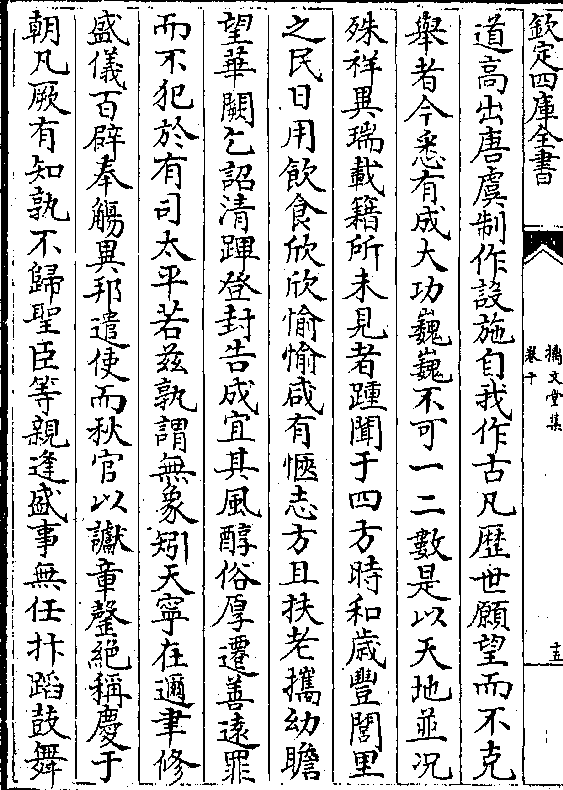 欽定四庫全書
摛文堂集
卷十
十五
道高出唐虞制作設施自我作古凡歴世願望而不克
舉者今悉有成大功巍巍不可一二數是以天地並况
殊祥異瑞載籍所未見者踵聞于四方時和歲豐閭里
之民日用飲食欣欣愉愉咸有愜志方且扶老攜幼瞻
望華闕乞詔清蹕登封告成宜其風醇俗厚遷善逺罪
而不犯於有司太平若兹孰謂無象矧天寧在邇聿修
盛儀百辟奉觴異邦遣使而秋官以讞章罄絶稱慶于
朝凡厥有知孰不歸聖臣等親逢盛事無任抃蹈鼓舞